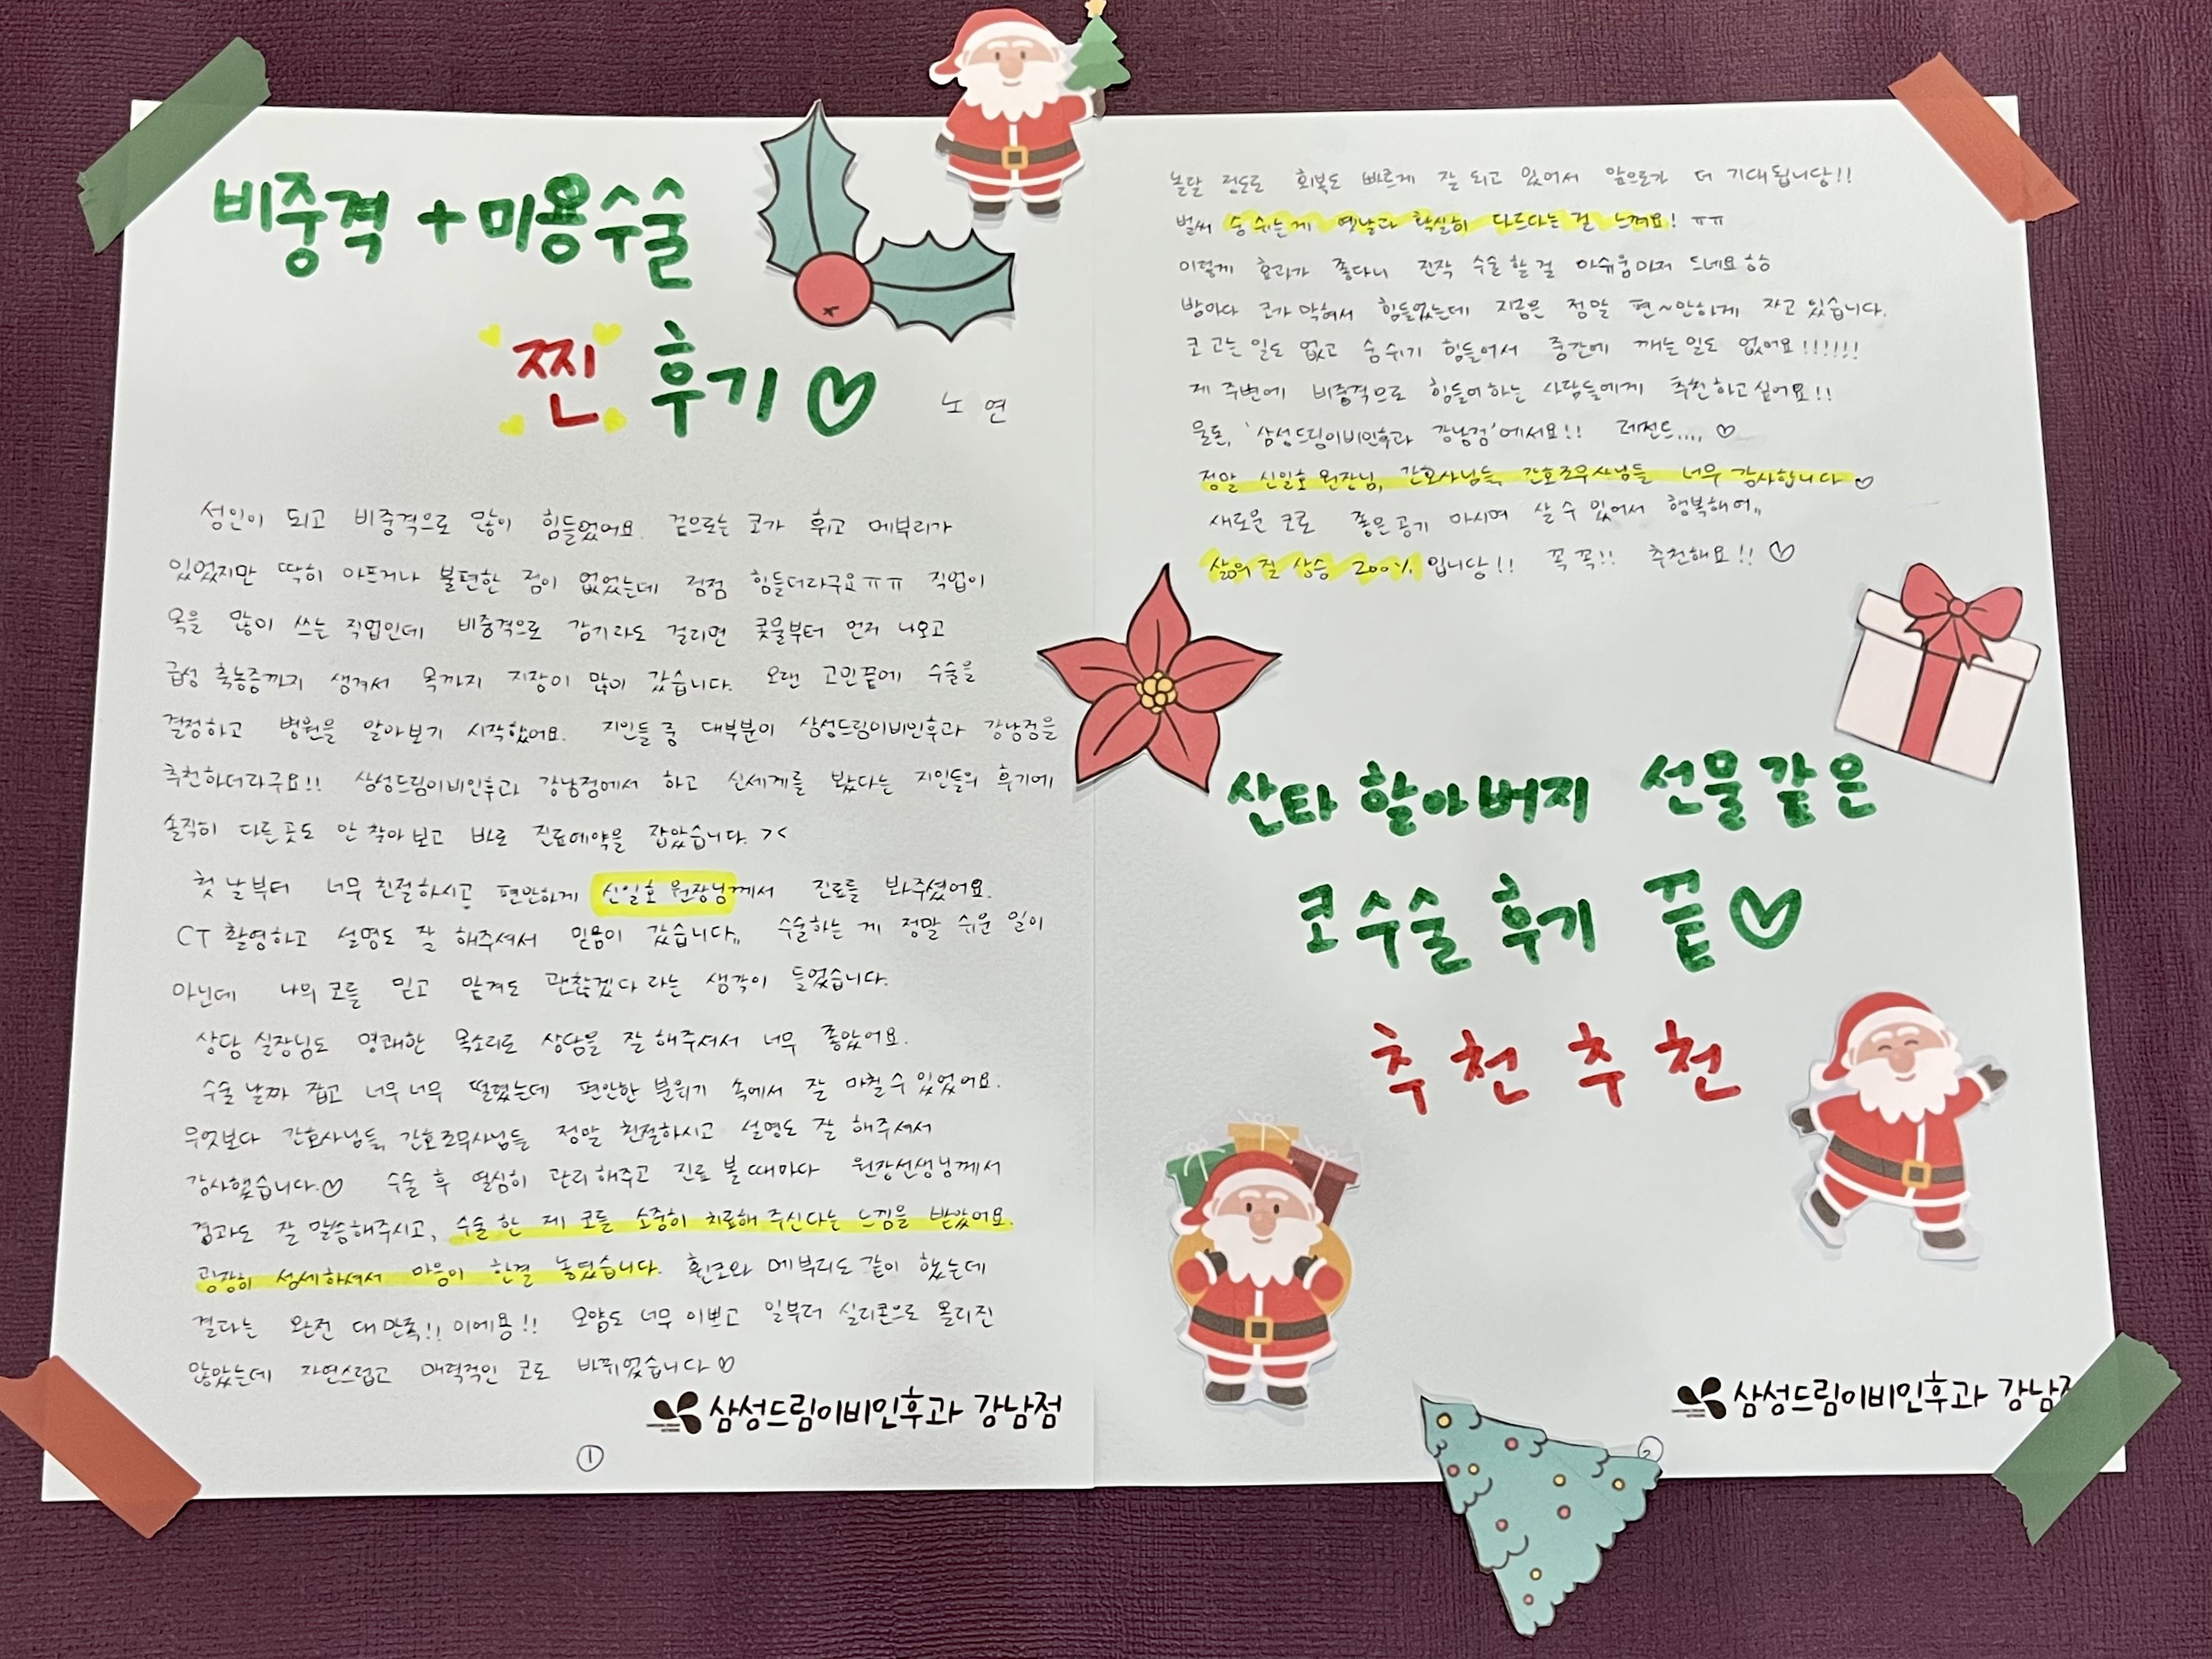 비중격 + 미용수술
찐 후기 ♡
노 연
성인이 되고 비중격으로 많이 힘들었어요. 겉으로는 코가 휘고 메부리가
있었지만 딱히 아프거나 불편한 점이 없었는데 점점 힘들더라구요ㅠㅠ 직업이
목을 많이 쓰는 직업인데 비중격으로 감기라도 걸리면 콧물부터 먼저 나오고
급성 축농증까지 생겨서 목까지 지장이 많이 갔습니다. 오랜 고민끝에 수술을
결정하고 병원을 알아보기 시작했어요. 지인들 중 대부분이 삼성드림이비인후과 강남점을
추천하더라구요!! 삼성드림이비인후과 강남점에서 하고 신세계를 봤다는 지인들의 후기에
솔직히 다른곳도 안 찾아보고 바로 진료예약을 잡았습니다. ><
첫 날부터 너무 친절하시고 편안하게 신일호 원장님께서 진료를 봐주셨어요.
CT 촬영하고 설명도 잘 해주셔서 믿음이 갔습니다,, 수술하는 게 정말 쉬운 일이
아닌데 나의 코를 믿고 맡겨도 괜찮겠다 라는 생각이 들었습니다.
상담 실장님도 명쾌한 목소리로 상담을 잘 해주셔서 너무 좋았어요.
수술 날짜 잡고 너무너무 떨렸는데 편안한 분위기 속에서 잘 마칠 수 있었어요.
무엇보다 간호사님들, 간호조무사님들 정말 친절하시고 설명도 잘 해주셔서
감사했습니다.♡ 수술 후 열심히 관리해주고 진료 볼 때마다 원장선생님께서
경과도 잘 말씀해주시고, 수술 한 제 코를 소중히 치료해 주신다는 느낌을 받았어요.
굉장히 섬세하셔서 마음이 한결 놓였습니다. 휜코와 메부리도 같이 했는데
결과는 완전 대만족!! 이에용!! 모양도 너무 이쁘고 일부러 실리콘으로 올리진
않았는데 자연스럽고 매력적인 코로 바뀌었습니다♡
삼성드림이비인후과 강남점
①
놀랄 정도로 회복도 빠르게 잘 되고 있어서 앞으로가 더 기대됩니당!!
벌써 숨 쉬는게 옛날과 확실히 다르다는 걸 느껴요! ㅠㅠ
이렇게 효과가 좋다니 진작 수술 할 걸 아쉬움마저 드네요ㅎㅎ
밤마다 코가 막혀서 힘들었는데 지금은 정말 편~안하게 자고 있습니다.
코 고는 일도 없고 숨 쉬기 힘들어서 중간에 깨는 일도 없어요!!!!!!
제 주변에 비중격으로 힘들어하는 사람들에게 추천하고싶어요!!
물론, '삼성드림이비인후과 강남점'에서요!! 레전드.... ♡
정말 신일호 원장님, 간호사님들, 간호조무사님들 너무 감사합니다♡
새로운 코로 좋은공기 마시며 살 수 있어서 행복해여,,
삶의 질 상승 200% 입니당!! 꼭꼭!! 추천해요!! ♡
산타 할아버지 선물같은
코수술 후기 끝♡
추천추천
삼성드림이비인후과 강남점
②